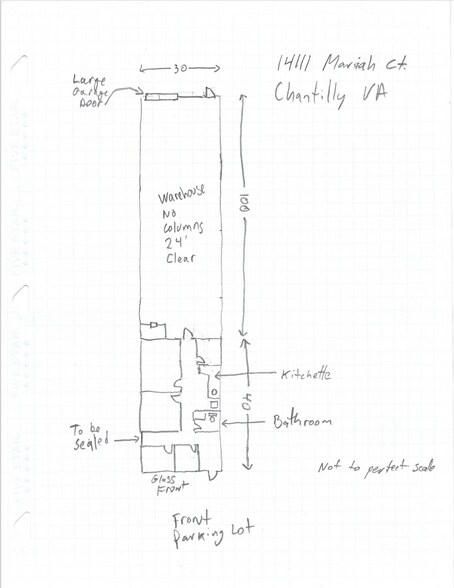 30
14111 Mariah Ct.
Chantilly VA
Large
Garage
Door
Warehouse
No
Columns
24'
Clear
100
Kitchette
40
To be
sealed
Bathroom
Glass
Front
Not to perfect scale
Front
Parking Lot